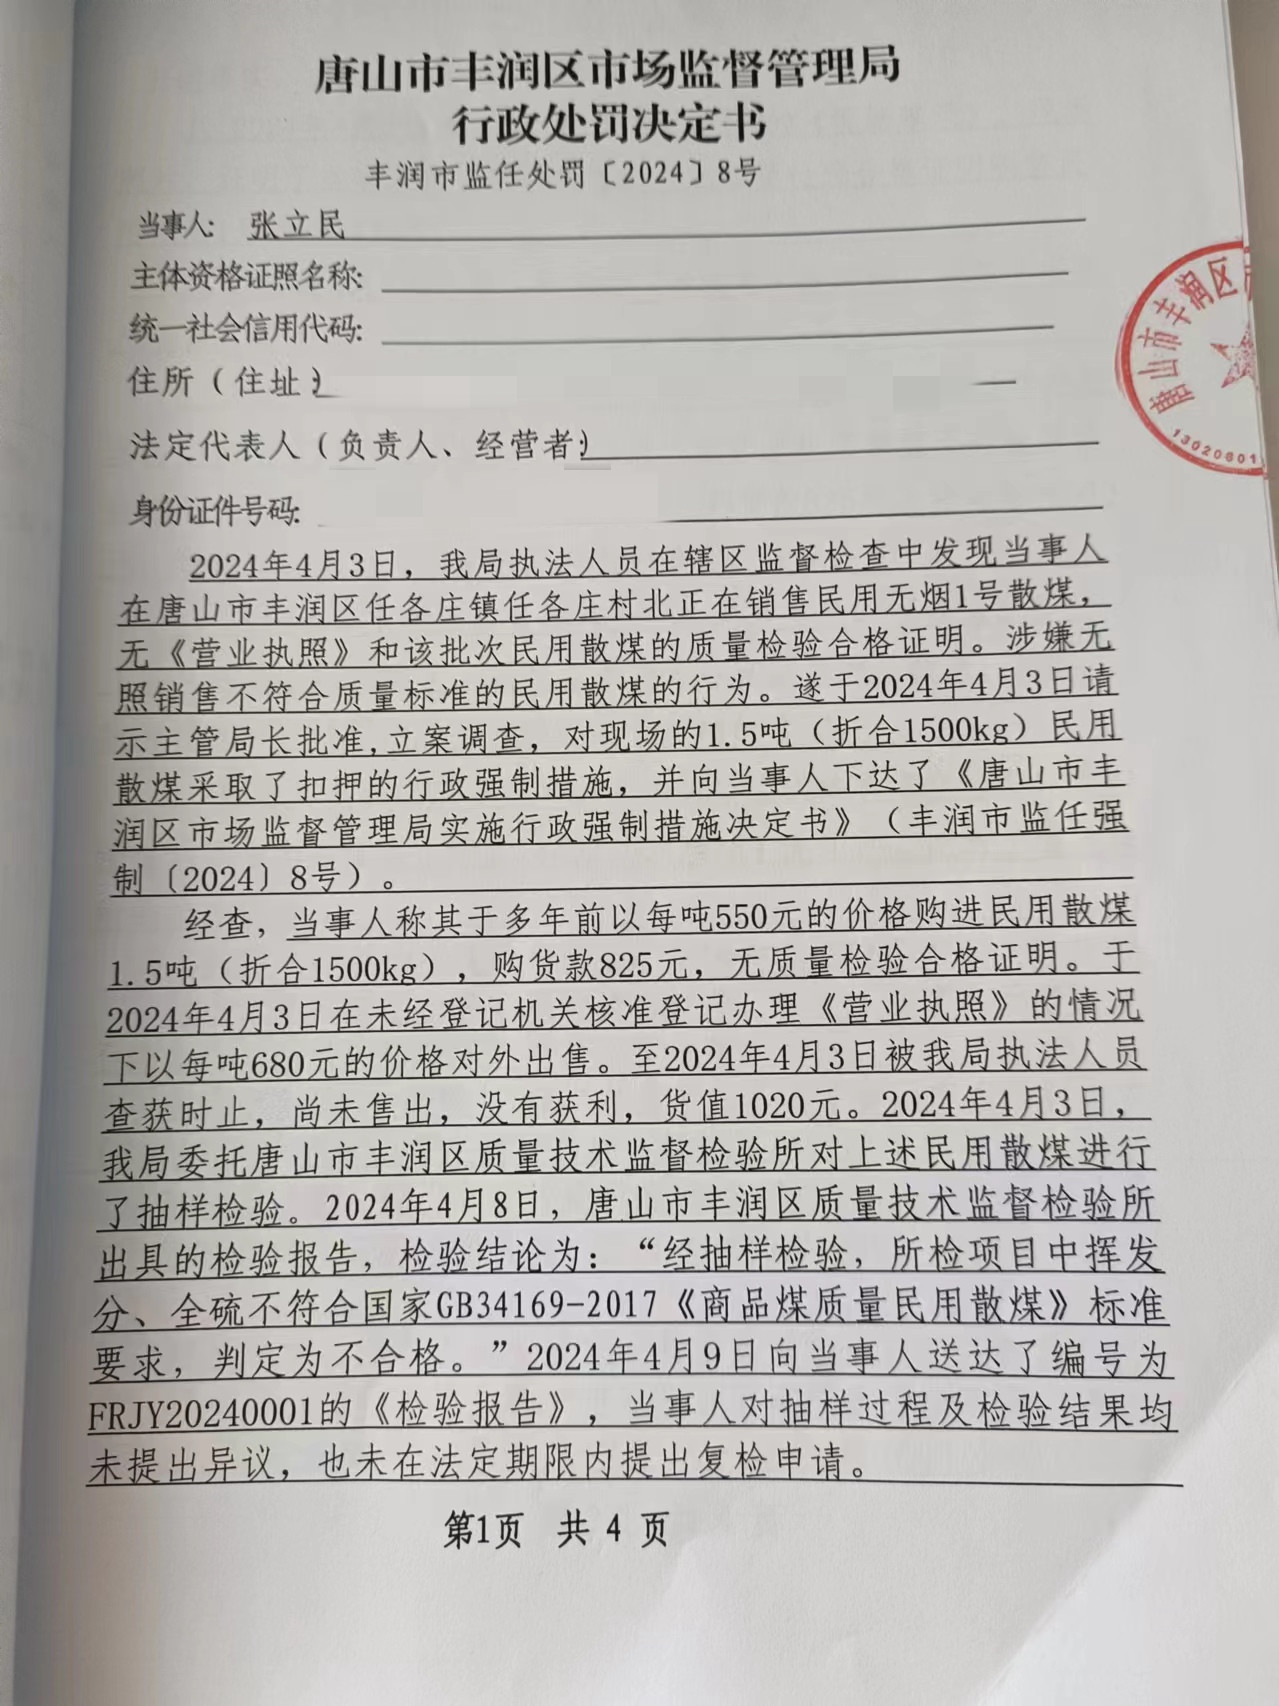 唐山市丰润区市场监督管理局
行政处罚决定书
丰润市监任处罚〔2024〕8号
当事人: 张立民
主体资格证照名称:
统一社会信用代码:
住所(住址):
法定代表人(负责人、经营者):
身份证件号码:
唐山市丰润区市
13020601
2024年4月3日，我局执法人员在辖区监督检查中发现当事人
在唐山市丰润区任各庄镇任各庄村北正在销售民用无烟1号散煤，
无《营业执照》和该批次民用散煤的质量检验合格证明。涉嫌无
照销售不符合质量标准的民用散煤的行为。遂于2024年4月3日请
示主管局长批准,立案调查，对现场的1.5吨（折合1500kg）民用
散煤采取了扣押的行政强制措施，并向当事人下达了《唐山市丰
润区市场监督管理局实施行政强制措施决定书》（丰润市监任强
制〔2024〕8号）。
经查，当事人称其于多年前以每吨550元的价格购进民用散煤
1.5吨（折合1500kg），购货款825元，无质量检验合格证明。于
2024年4月3日在未经登记机关核准登记办理《营业执照》的情况
下以每吨680元的价格对外出售。至2024年4月3日被我局执法人员
查获时止，尚未售出，没有获利，货值1020元。2024年4月3日，
我局委托唐山市丰润区质量技术监督检验所对上述民用散煤进行
了抽样检验。2024年4月8日，唐山市丰润区质量技术监督检验所
出具的检验报告，检验结论为：“经抽样检验，所检项目中挥发
分、全硫不符合国家GB34169-2017《商品煤质量民用散煤》标准
要求，判定为不合格。”2024年4月9日向当事人送达了编号为
FRJY20240001的《检验报告》，当事人对抽样过程及检验结果均
未提出异议，也未在法定期限内提出复检申请。
第1页 共 4 页